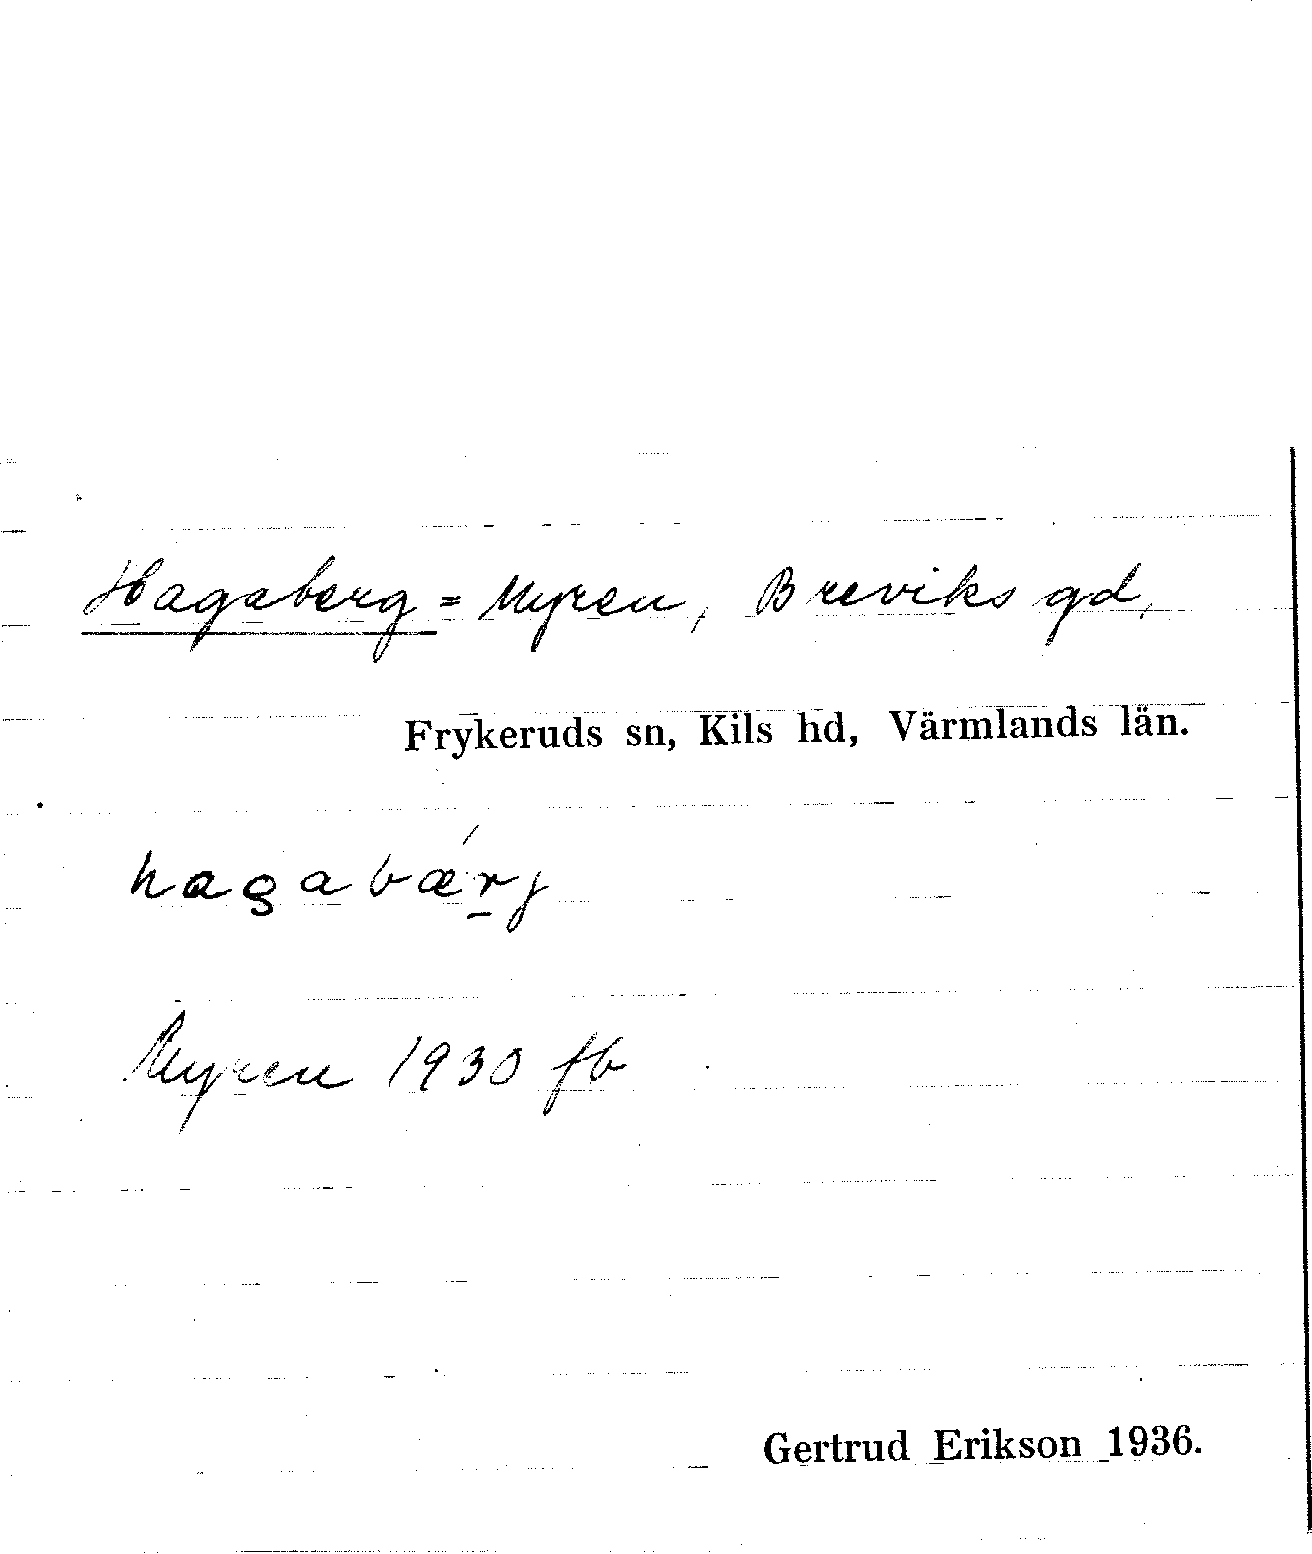 Hagaberg = Myren, Breviks gd,
Frykeruds sn, Kils hd, Värmlands län.
hagabæŕ̲j
Myren 1930 fb
Gertrud Erikson 1936.